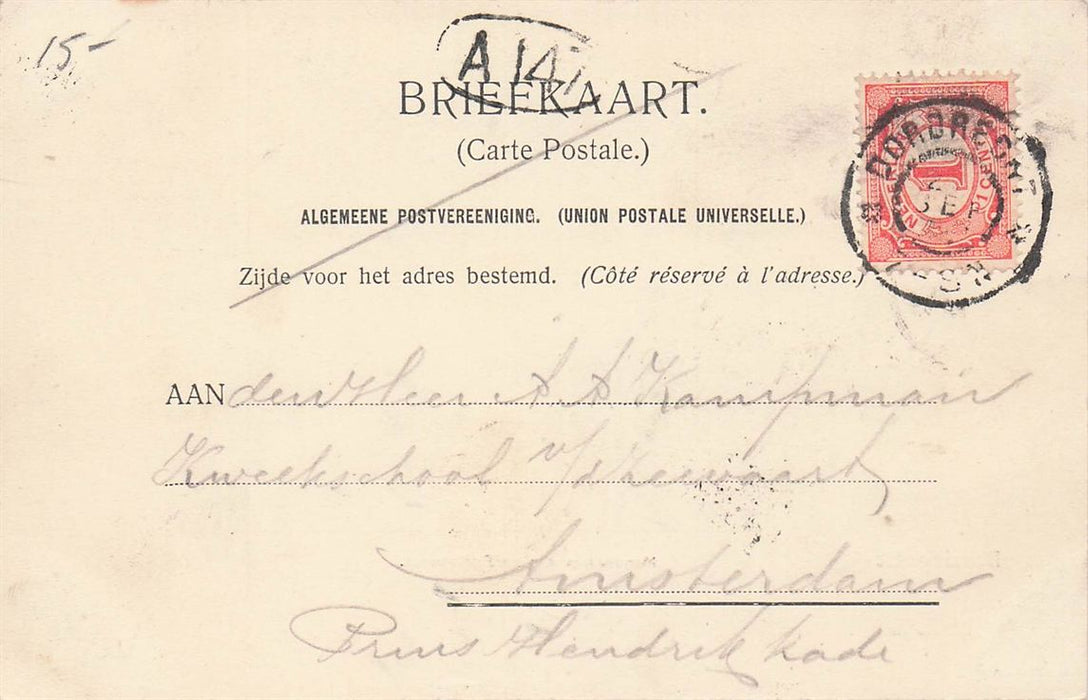 15-
A 14
BRIEFKAART.
(Carte Postale.)
ALGEMEENE POSTVEREENIGING. (UNION POSTALE UNIVERSELLE.)
Zijde voor het adres bestemd. (Côté réservé à l'adresse.)
DORDRECHT
SEP
1
CENT
AAN den Heer A A Kampman
Kweekschool v/d Zeevaart
Amsterdam
Prins Hendrik kade